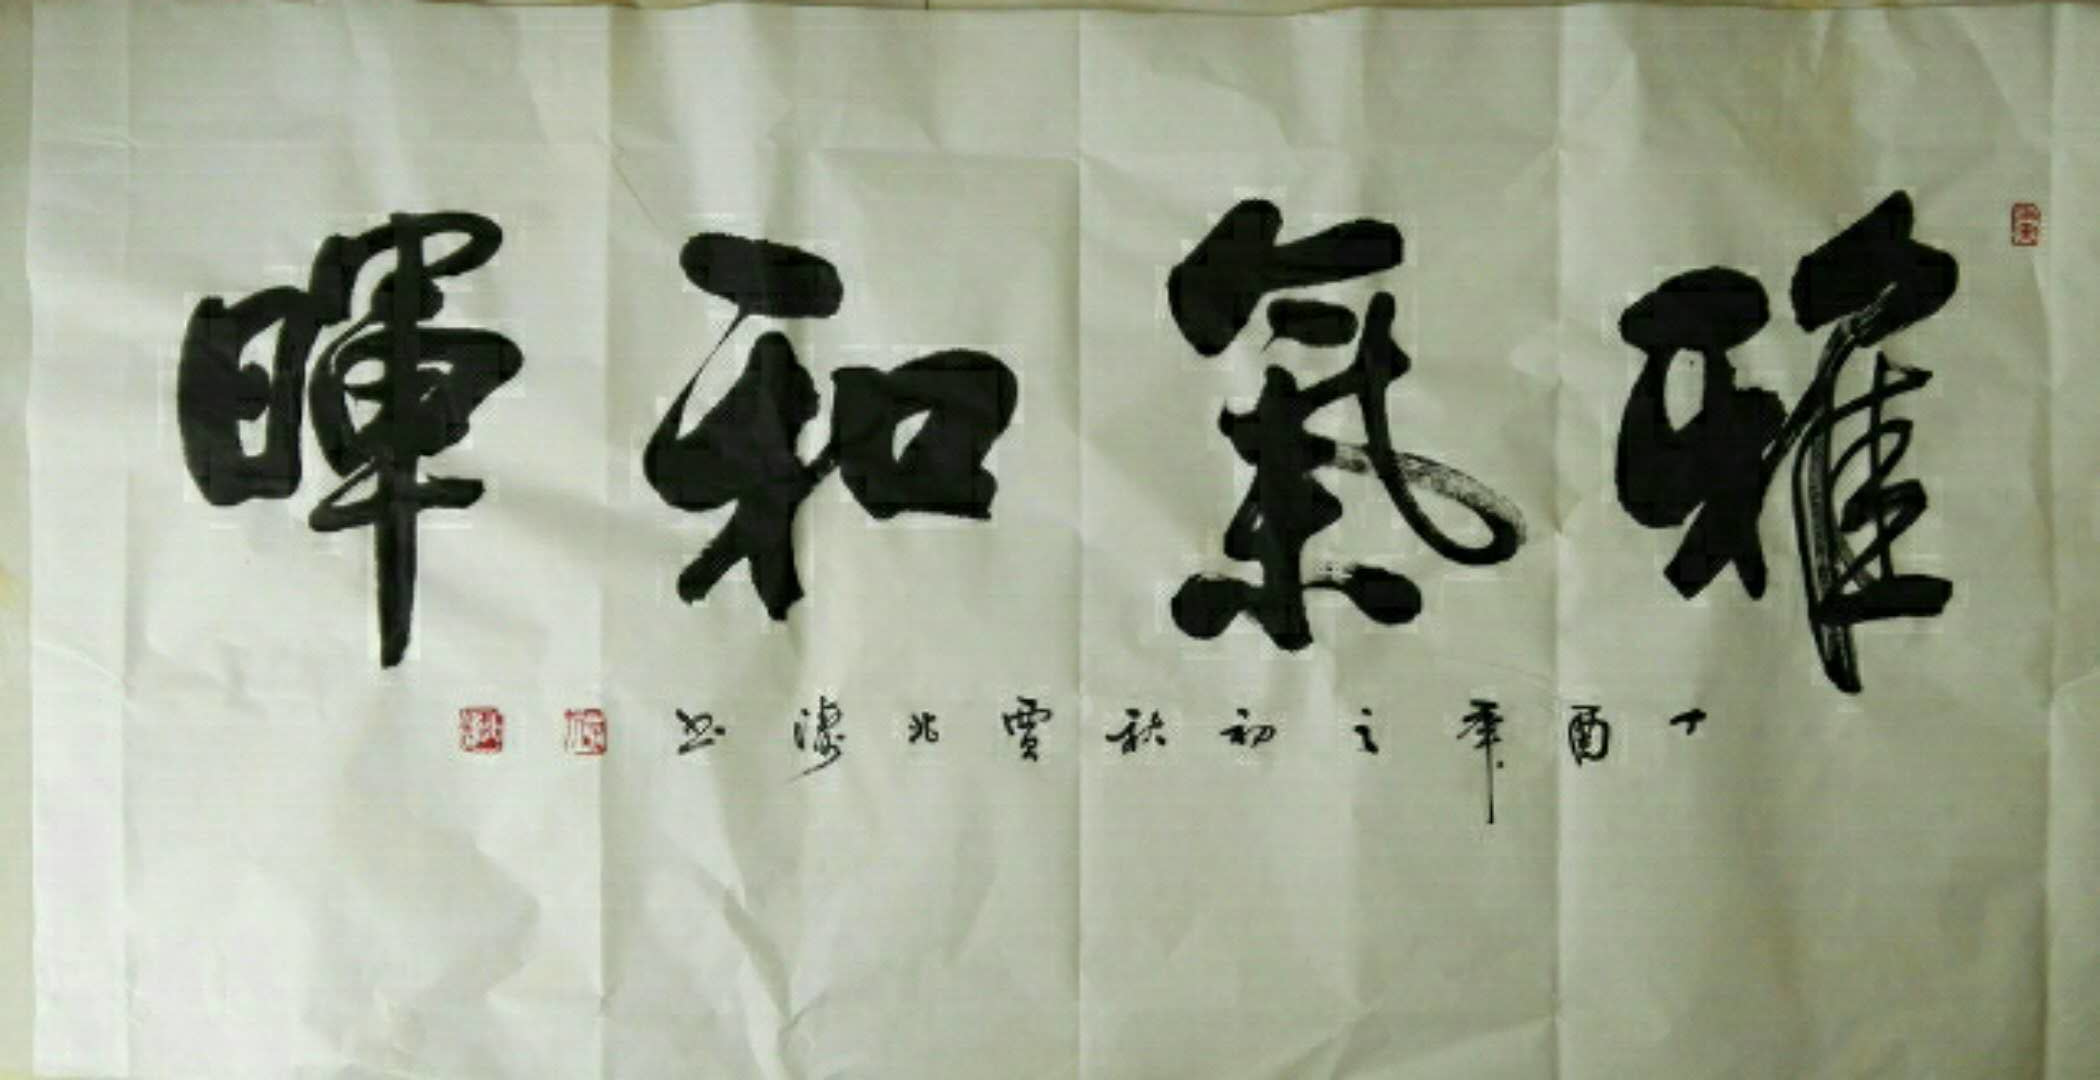 雅氣和暉
丁酉年之初秋賈北海书